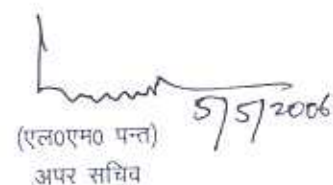 5/5/2006
(एल0एम0 पन्त)
अपर सचिव